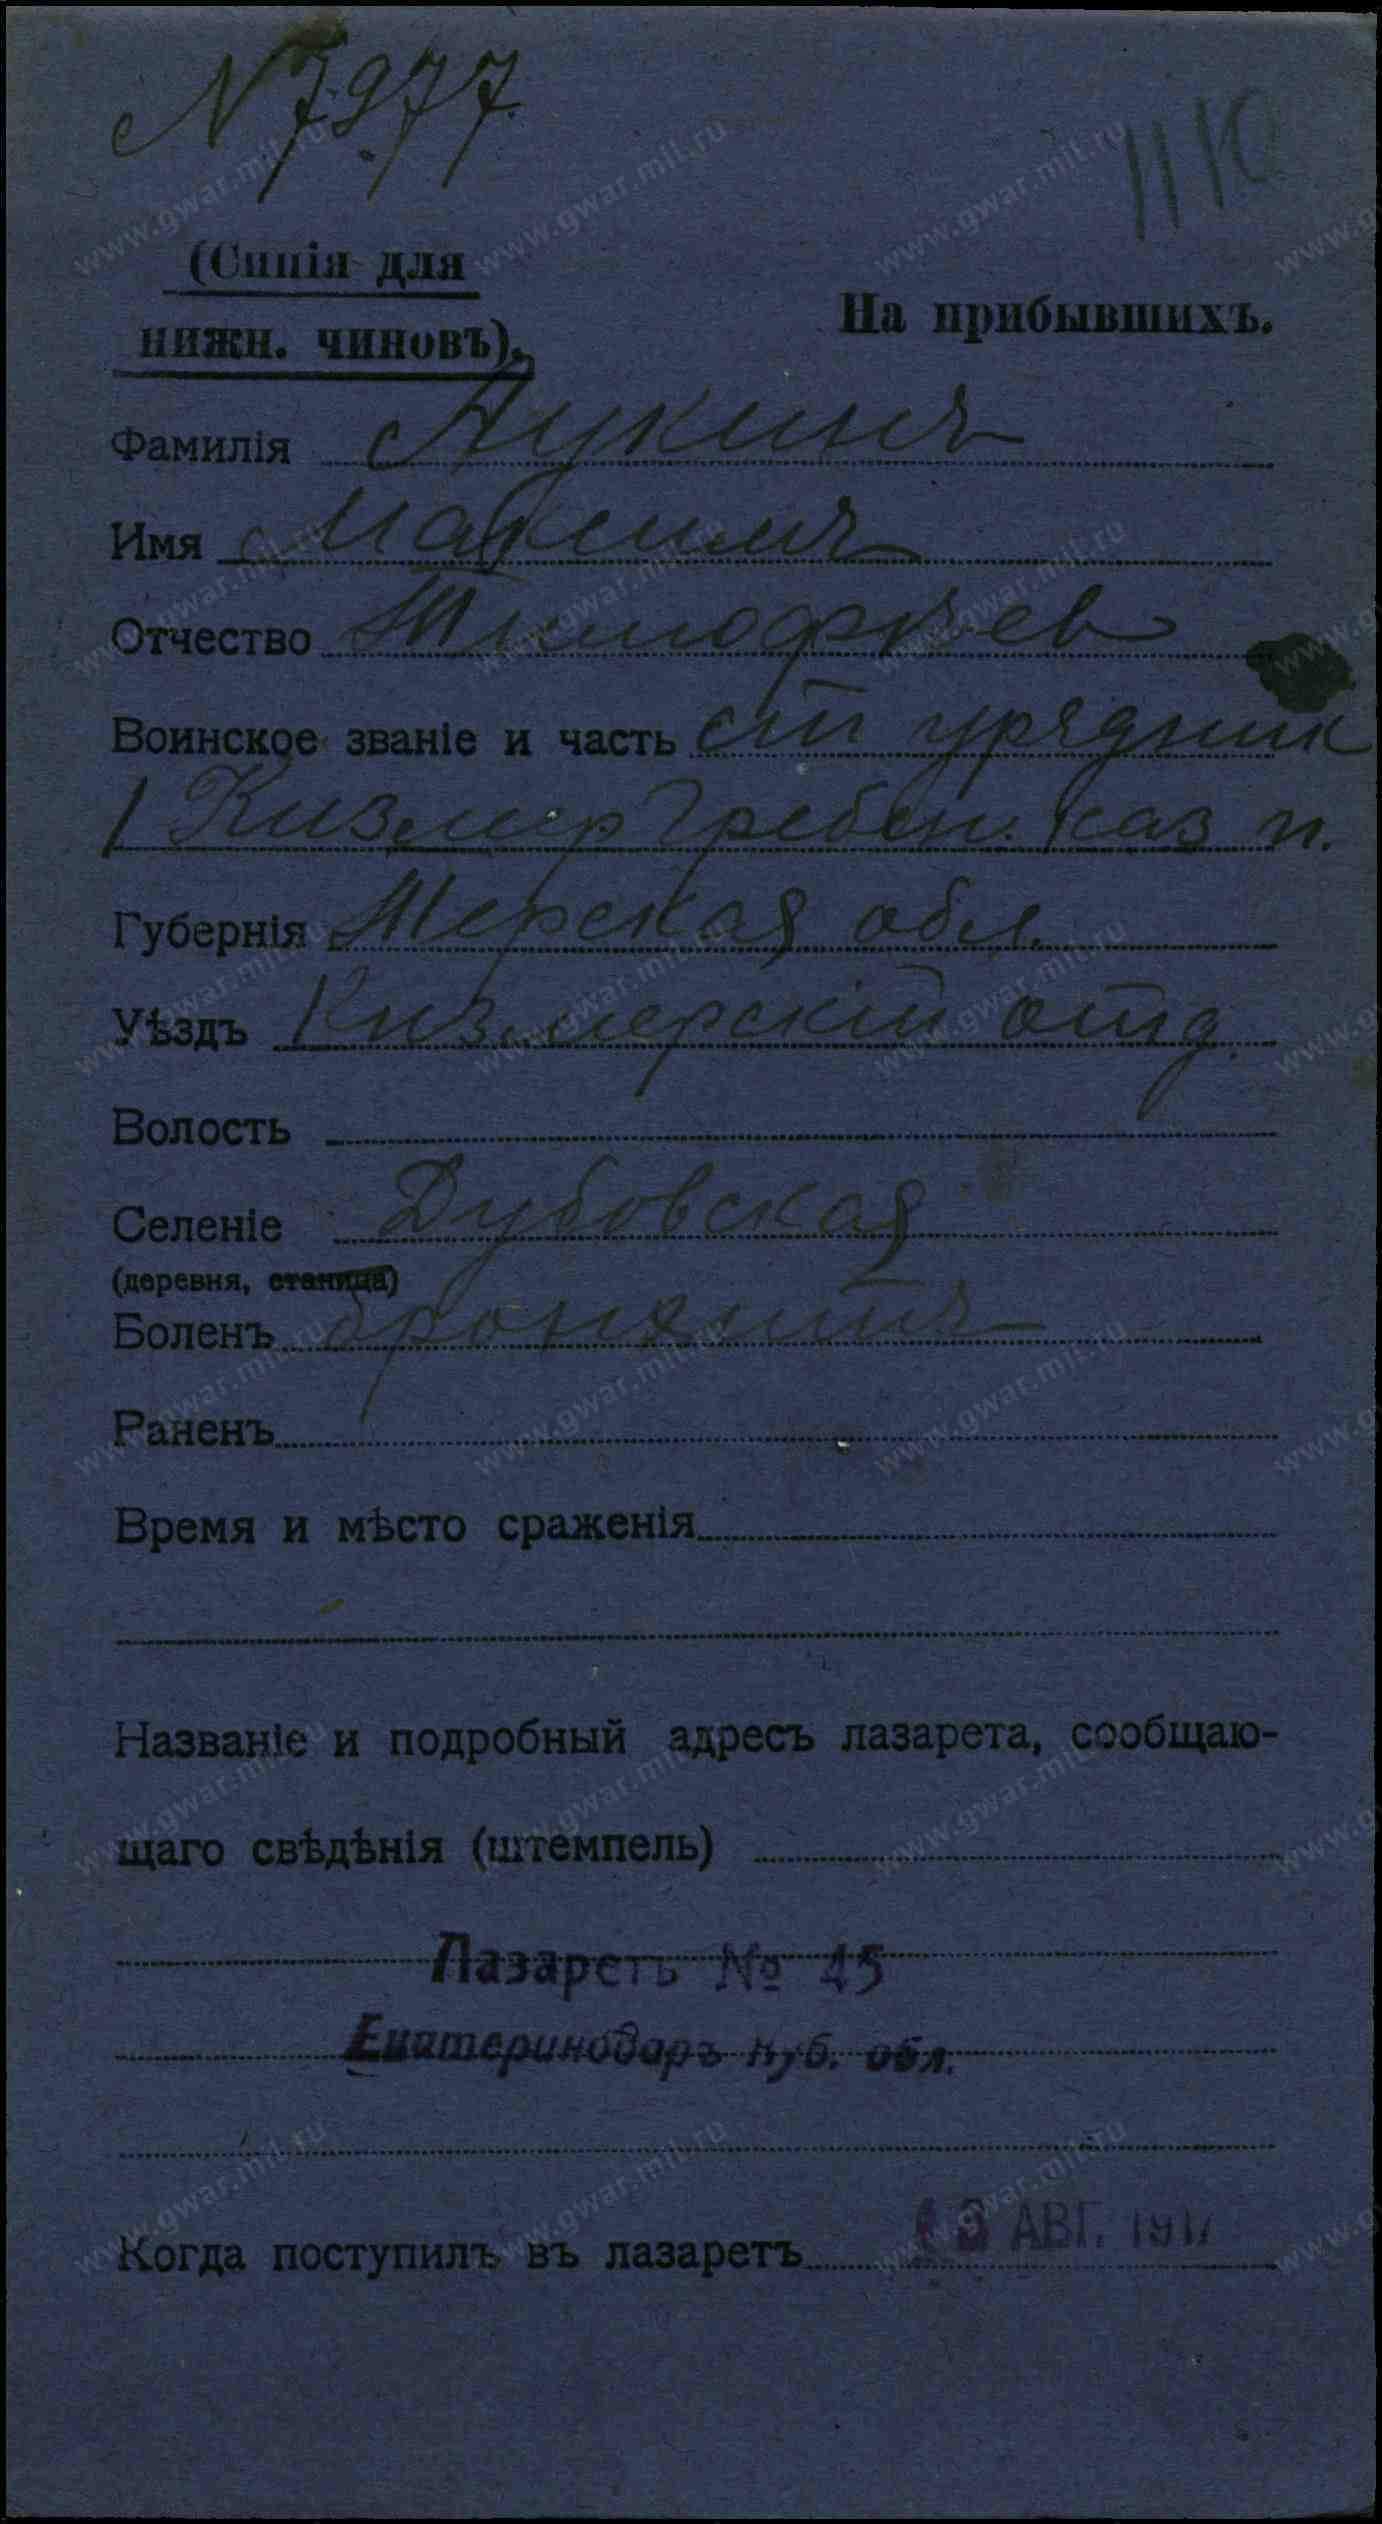 N 7977.
(Синія для
нижн. чиновъ).
На прибывшихъ.
Фамилія Лукинъ
Имя Максимъ
Отчество Тимофѣев
Воинское званіе и часть ст урядник
1 Кизляр Гребен. каз п.
Губернія Терская обл.
Уѣздъ Кизлярскій отд.
Волость
Селеніе Дубовская
(деревня, станица)
Боленъ бронхитъ
Раненъ
Время и мѣсто сраженія
Названіе и подробный адресъ лазарета, сообщаю-
щаго свѣдѣнія (штемпель)
Лазаретъ № 45
Екатеринодаръ Куб. обл.
Когда поступилъ въ лазаретъ АВГ. 1917
www.gwar.mil.ru